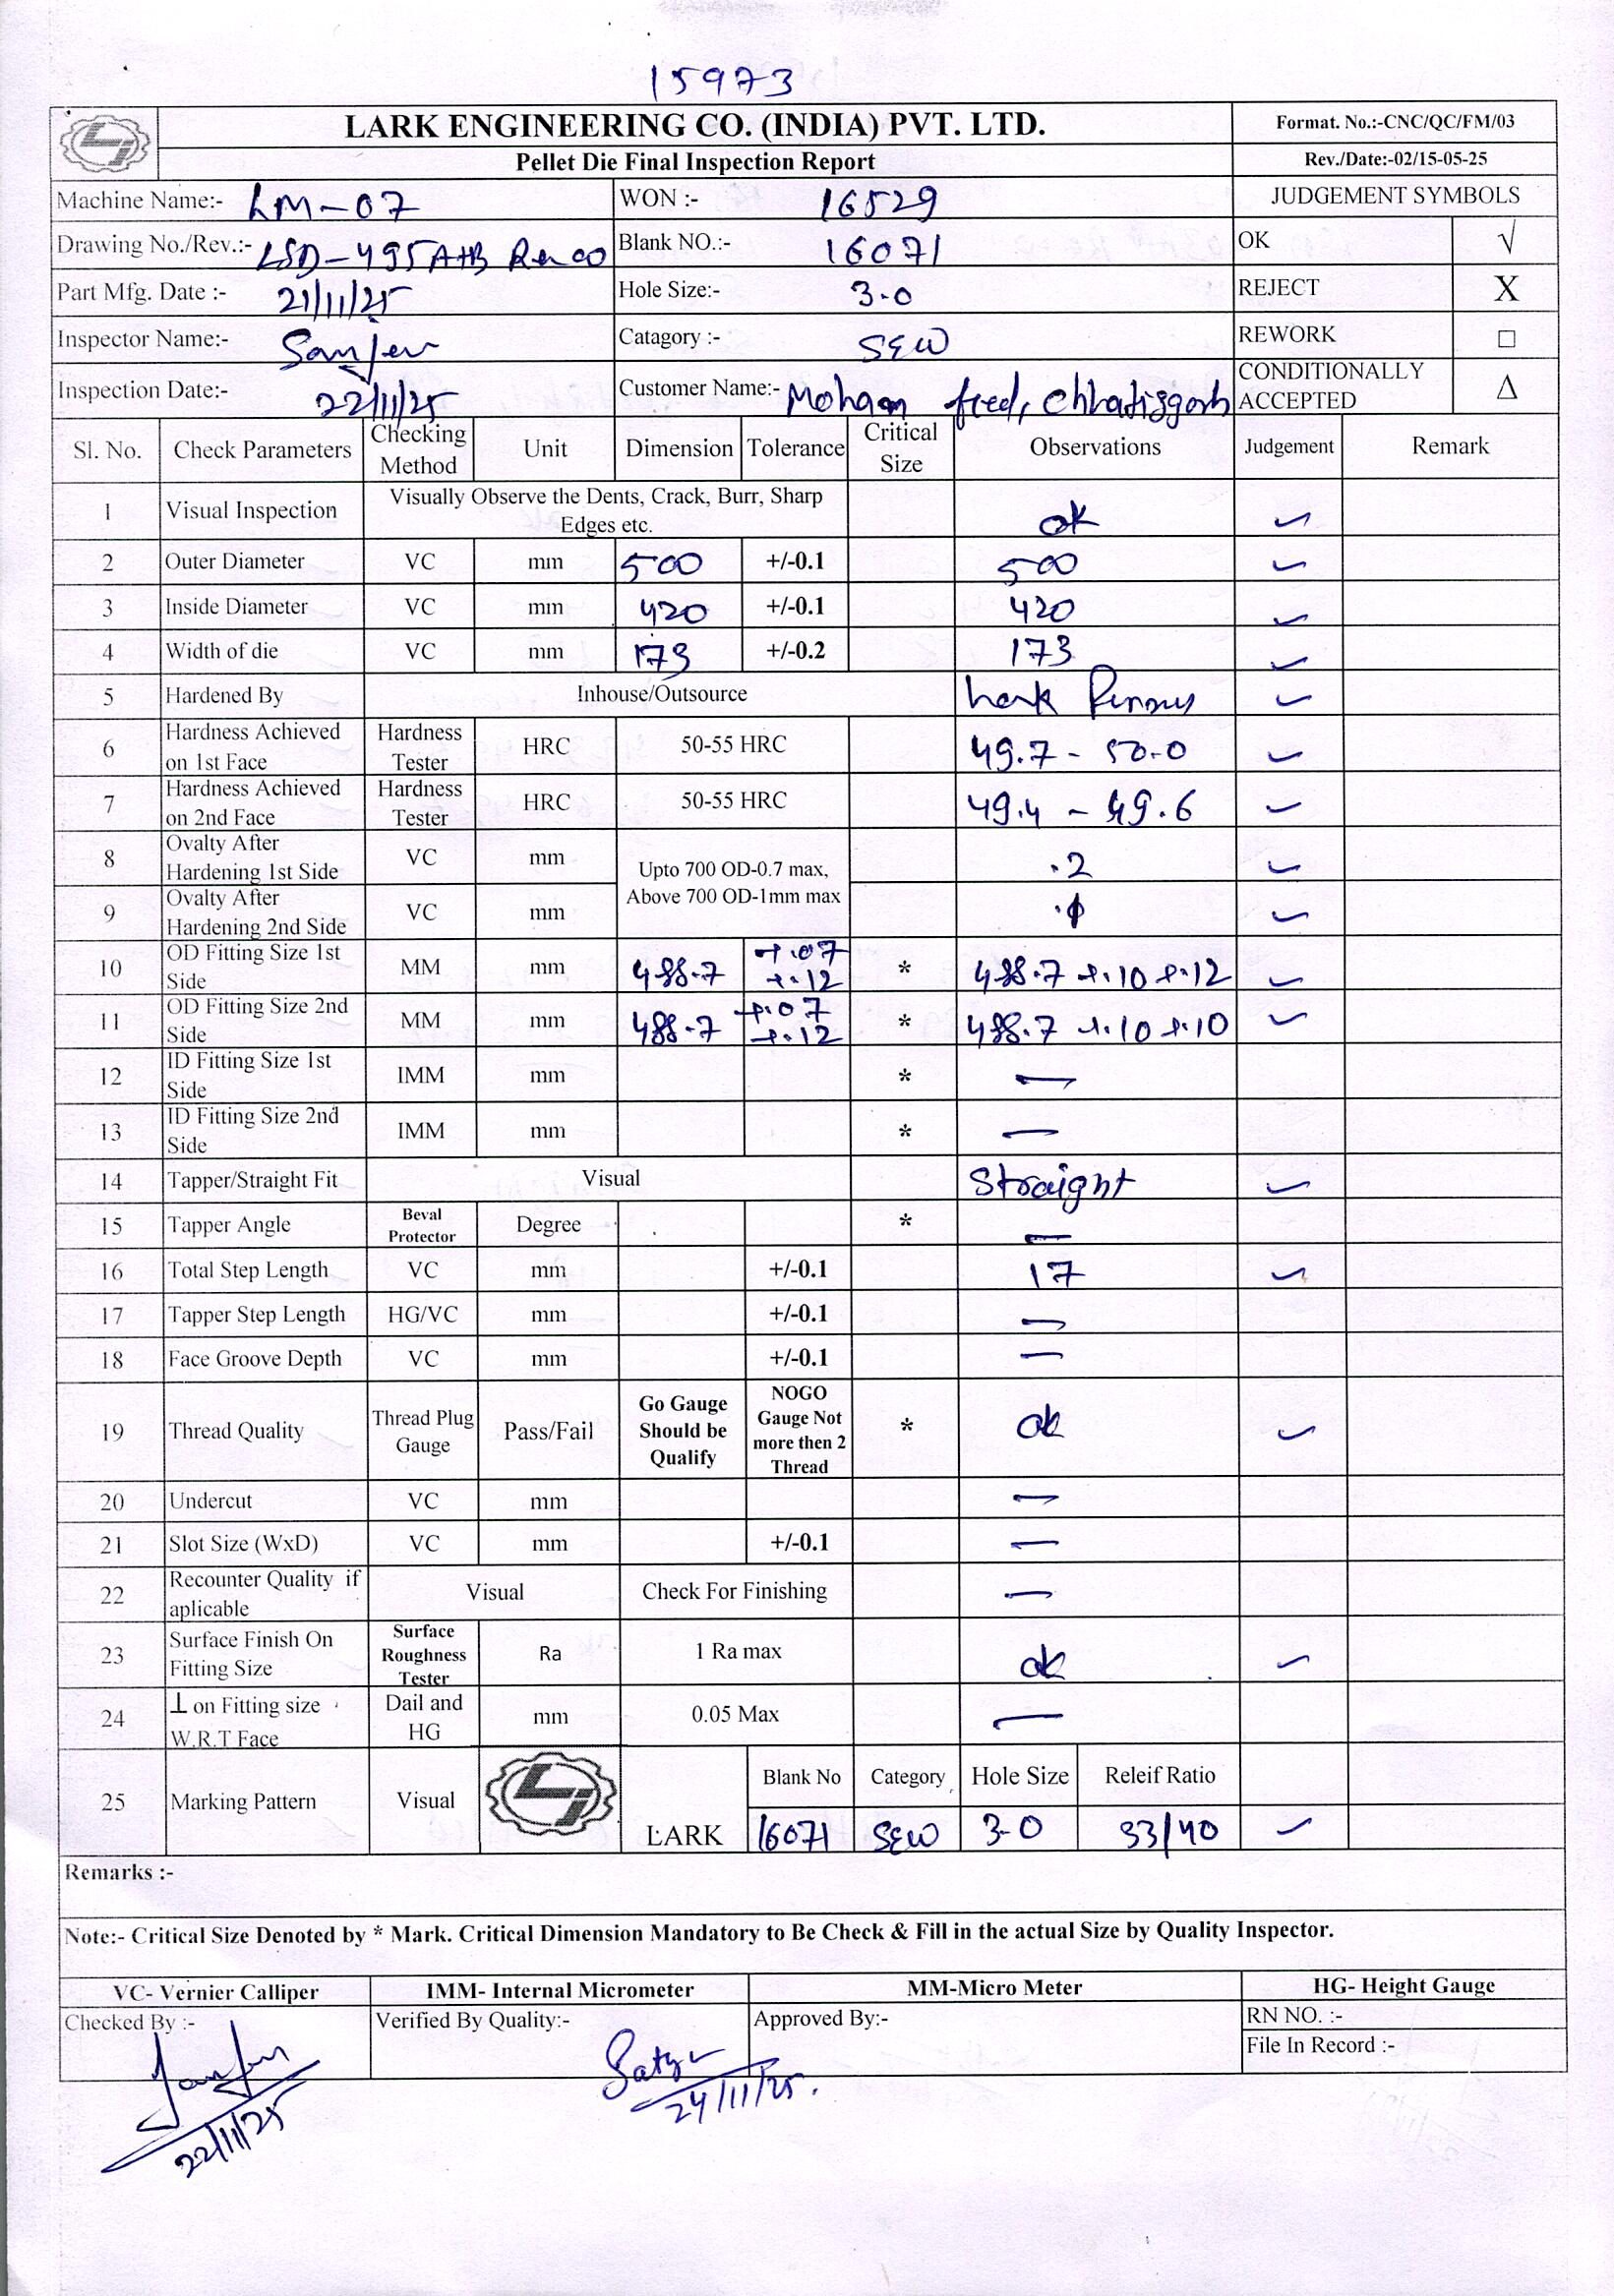 15973
LARK ENGINEERING CO. (INDIA) PVT. LTD.
Format. No.:-CNC/QC/FM/03
Pellet Die Final Inspection Report
Rev./Date:-02/15-05-25
Machine Name:- LM-07 WON :- 16529 JUDGEMENT SYMBOLS
Drawing No./Rev.:- LSD-495A+B Rev 00 Blank NO.:- 16071 OK √
Part Mfg. Date :- 21/11/25 Hole Size:- 3.0 REJECT X
Inspector Name:- Sanjev Catagory :- SEW REWORK □
Inspection Date:- 22/11/25 Customer Name:- Moham feed, Chhatisgarh CONDITIONALLY ACCEPTED Δ
Sl. No. Check Parameters Checking Method Unit Dimension Tolerance Critical Size Observations Judgement Remark
1 Visual Inspection Visually Observe the Dents, Crack, Burr, Sharp Edges etc. ok ✓
2 Outer Diameter VC mm 500 +/-0.1 500 ✓
3 Inside Diameter VC mm 420 +/-0.1 420 ✓
4 Width of die VC mm 173 +/-0.2 173 ✓
5 Hardened By Inhouse/Outsource Lark ✓
6 Hardness Achieved on 1st Face Hardness Tester HRC 50-55 HRC 49.7 - 50.0 ✓
7 Hardness Achieved on 2nd Face Hardness Tester HRC 50-55 HRC 49.4 - 49.6 ✓
8 Ovalty After Hardening 1st Side VC mm Upto 700 OD-0.7 max, Above 700 OD-1mm max .2 ✓
9 Ovalty After Hardening 2nd Side VC mm ✓
10 OD Fitting Size 1st Side MM mm 488.7 +.07 +.12 * 488.7 +.10 +.12 ✓
11 OD Fitting Size 2nd Side MM mm 488.7 +.07 +.12 * 488.7 +.10 +.10 ✓
12 ID Fitting Size 1st Side IMM mm * —
13 ID Fitting Size 2nd Side IMM mm * —
14 Tapper/Straight Fit Visual Straight ✓
15 Tapper Angle Beval Protector Degree * —
16 Total Step Length VC mm +/-0.1 17 ✓
17 Tapper Step Length HG/VC mm +/-0.1 —
18 Face Groove Depth VC mm +/-0.1 —
19 Thread Quality Thread Plug Gauge Pass/Fail Go Gauge Should be Qualify NOGO Gauge Not more then 2 Thread * ok ✓
20 Undercut VC mm —
21 Slot Size (WxD) VC mm +/-0.1 —
22 Recounter Quality if aplicable Visual Check For Finishing —
23 Surface Finish On Fitting Size Surface Roughness Tester Ra 1 Ra max ok ✓
24 ⊥ on Fitting size W.R.T Face Dail and HG mm 0.05 Max —
25 Marking Pattern Visual LARK Blank No Category Hole Size Releif Ratio
16071 SEW 3.0 33/40 ✓
Remarks :-
Note:- Critical Size Denoted by * Mark. Critical Dimension Mandatory to Be Check & Fill in the actual Size by Quality Inspector.
VC- Vernier Calliper IMM- Internal Micrometer MM-Micro Meter HG- Height Gauge
Checked By :- Verified By Quality:- Approved By:- RN NO. :-
File In Record :-
Sanjev Satya
22/11/25 24/11/25.